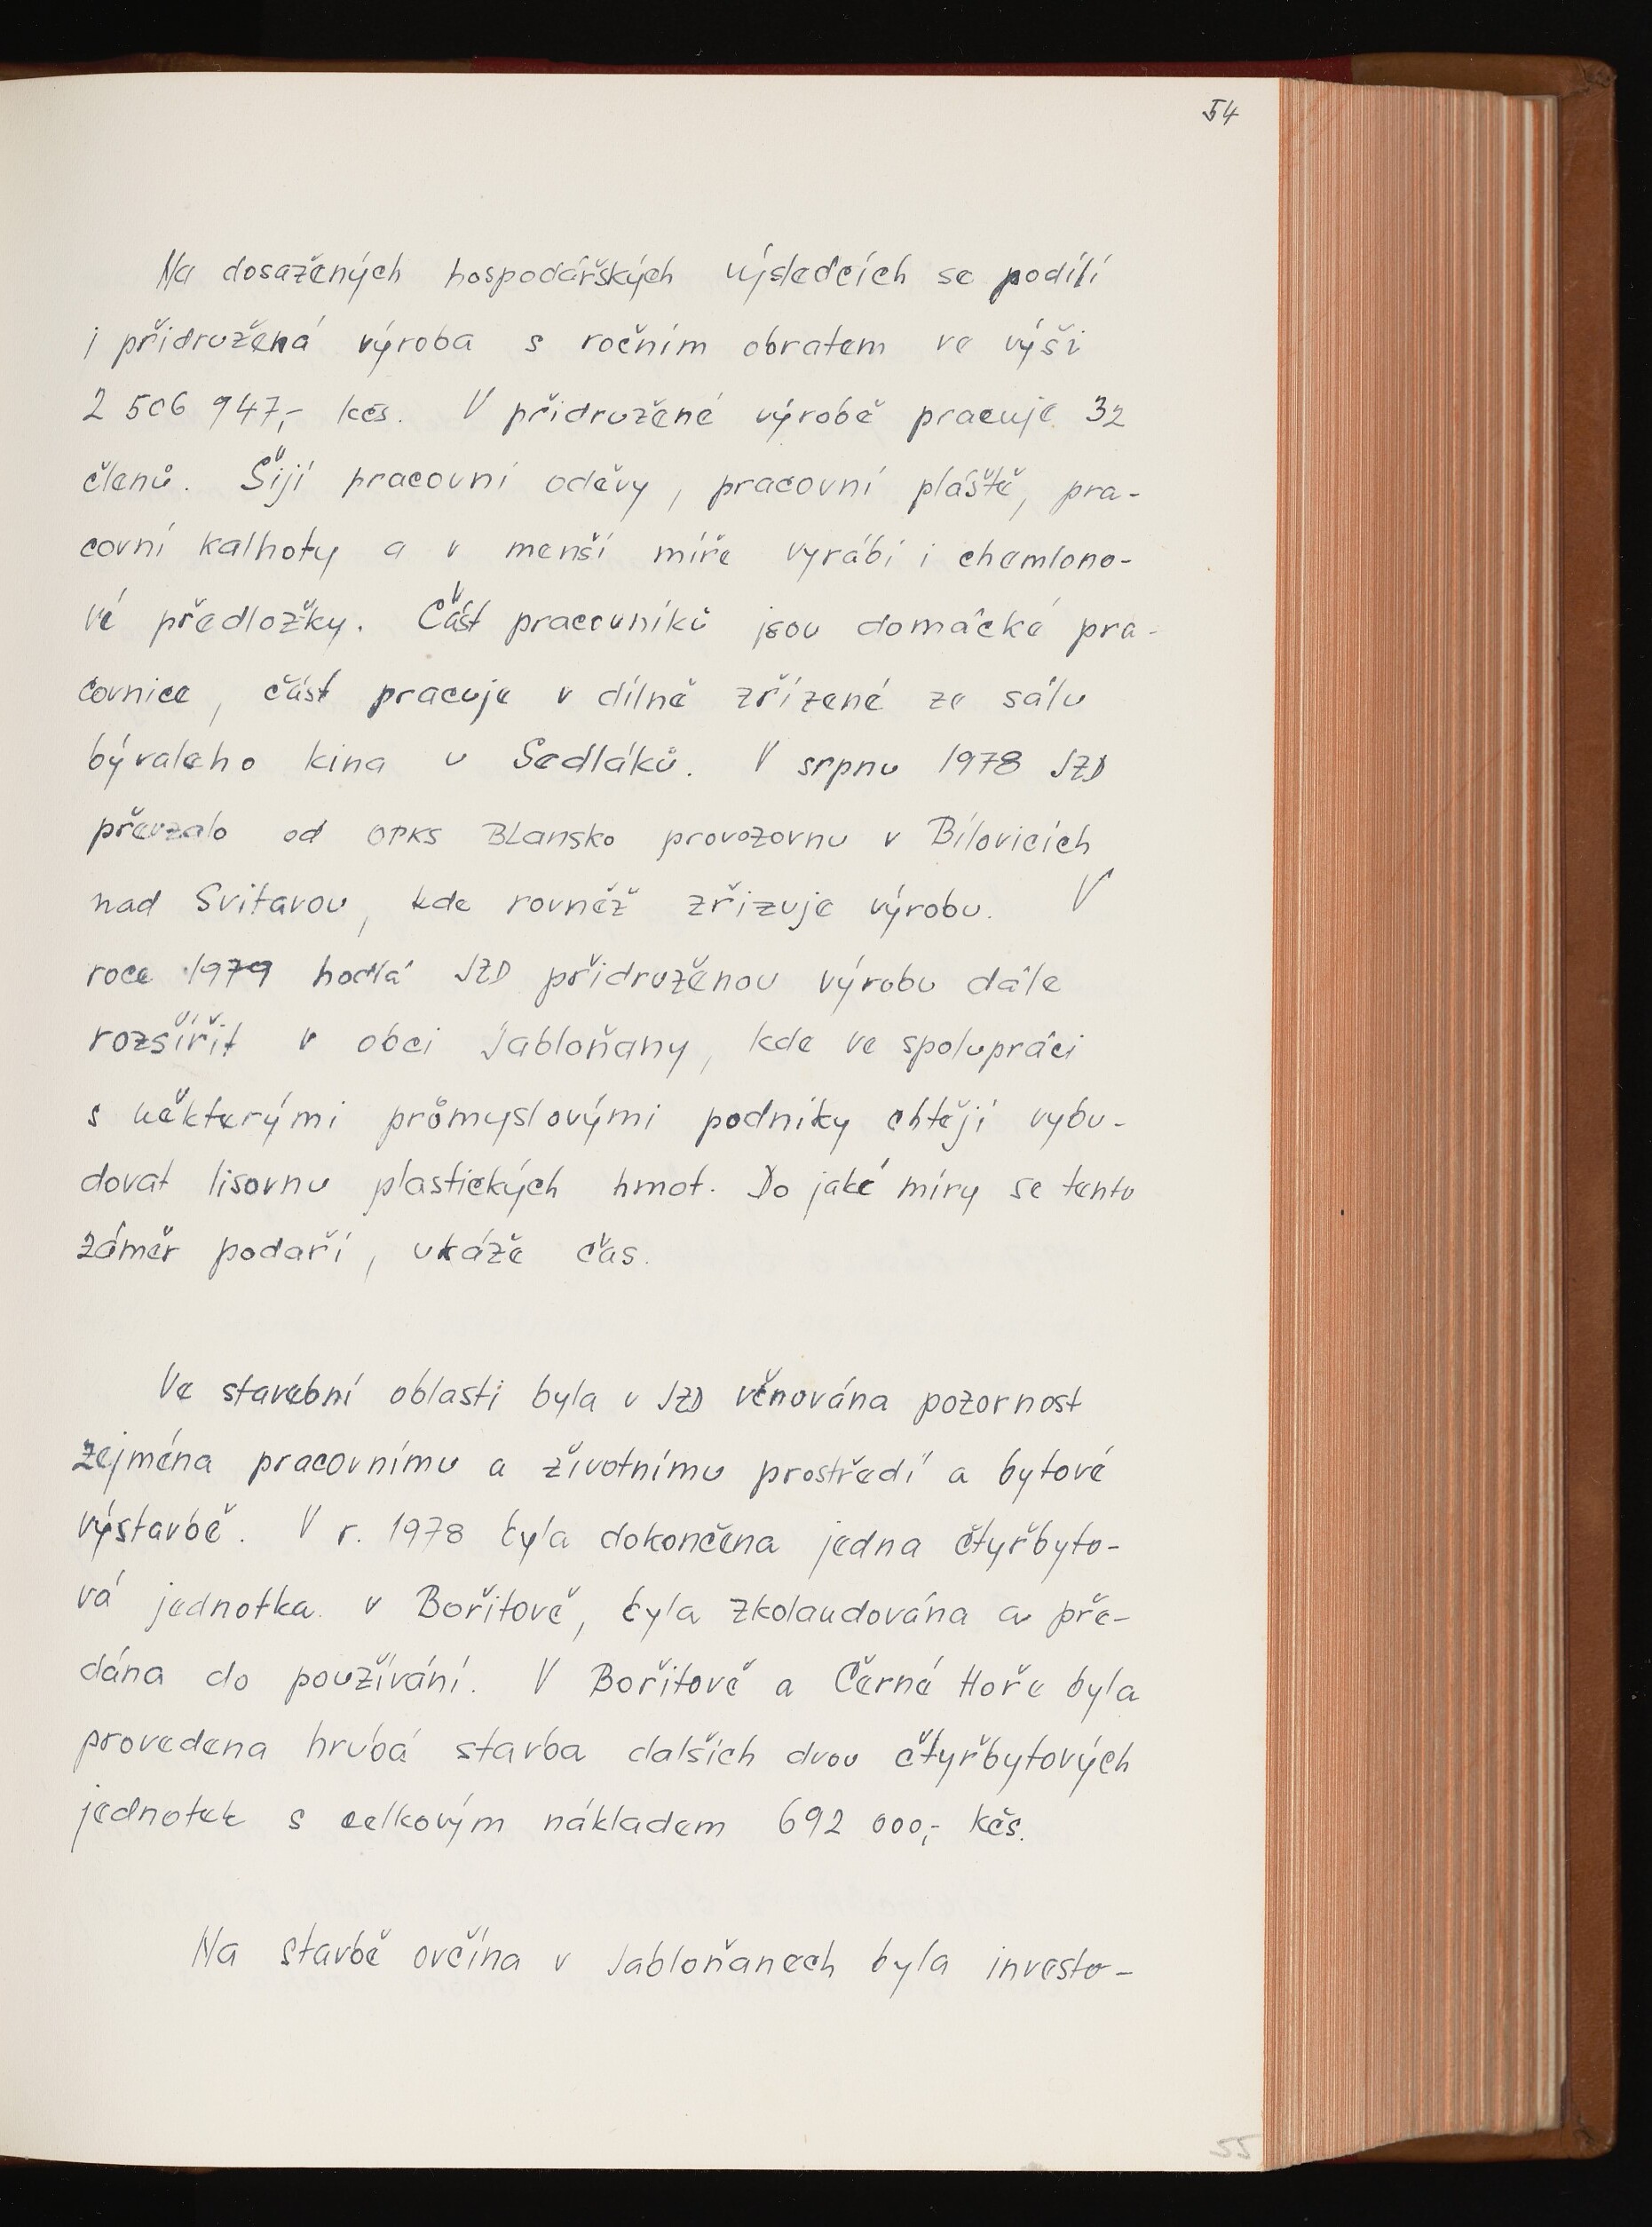 54
Na dosažených hospodářských výsledcích se podílí
i přidružená výroba s ročním obratem ve výši
2 506 947,- kčs. V přidružené výrobě pracuje 32
členů. Šijí pracovní oděvy, pracovní pláště, pra-
covní kalhoty a v menší míře vyrábí i chemlono-
vé předložky. Část pracovníků jsou domácké pra-
covnice, část pracuje v dílně zřízené ze sálu
bývaleho kina u Sedláků. V srpnu 1978 JZD
převzalo od OPKS Blansko provozovnu v Bílovicích
nad Svitavou, kde rovněž zřizuje výrobu. V
roce 1979 hodlá JZD přidruženou výrobu dále
rozšířit v obci Jabloňany, kde ve spolupráci
s některými průmyslovými podniky chtějí vybu-
dovat lisovnu plastických hmot. Do jaké míry se tento
záměr podaří, ukáže čas.
Ve stavební oblasti byla v JZD věnována pozornost
zejména pracovnímu a životnímu prostředí a bytové
výstavbě. V r. 1978 byla dokončena jedna čtyřbyto-
vá jednotka v Bořitově, byla zkolaudována a pře-
dána do používání. V Bořitově a Černé Hoře byla
provedena hrubá stavba dalších dvou čtyřbytových
jednotek s celkovým nákladem 692 000,- kčs.
Na stavbě ovčína v Jabloňanech byla investo-
55